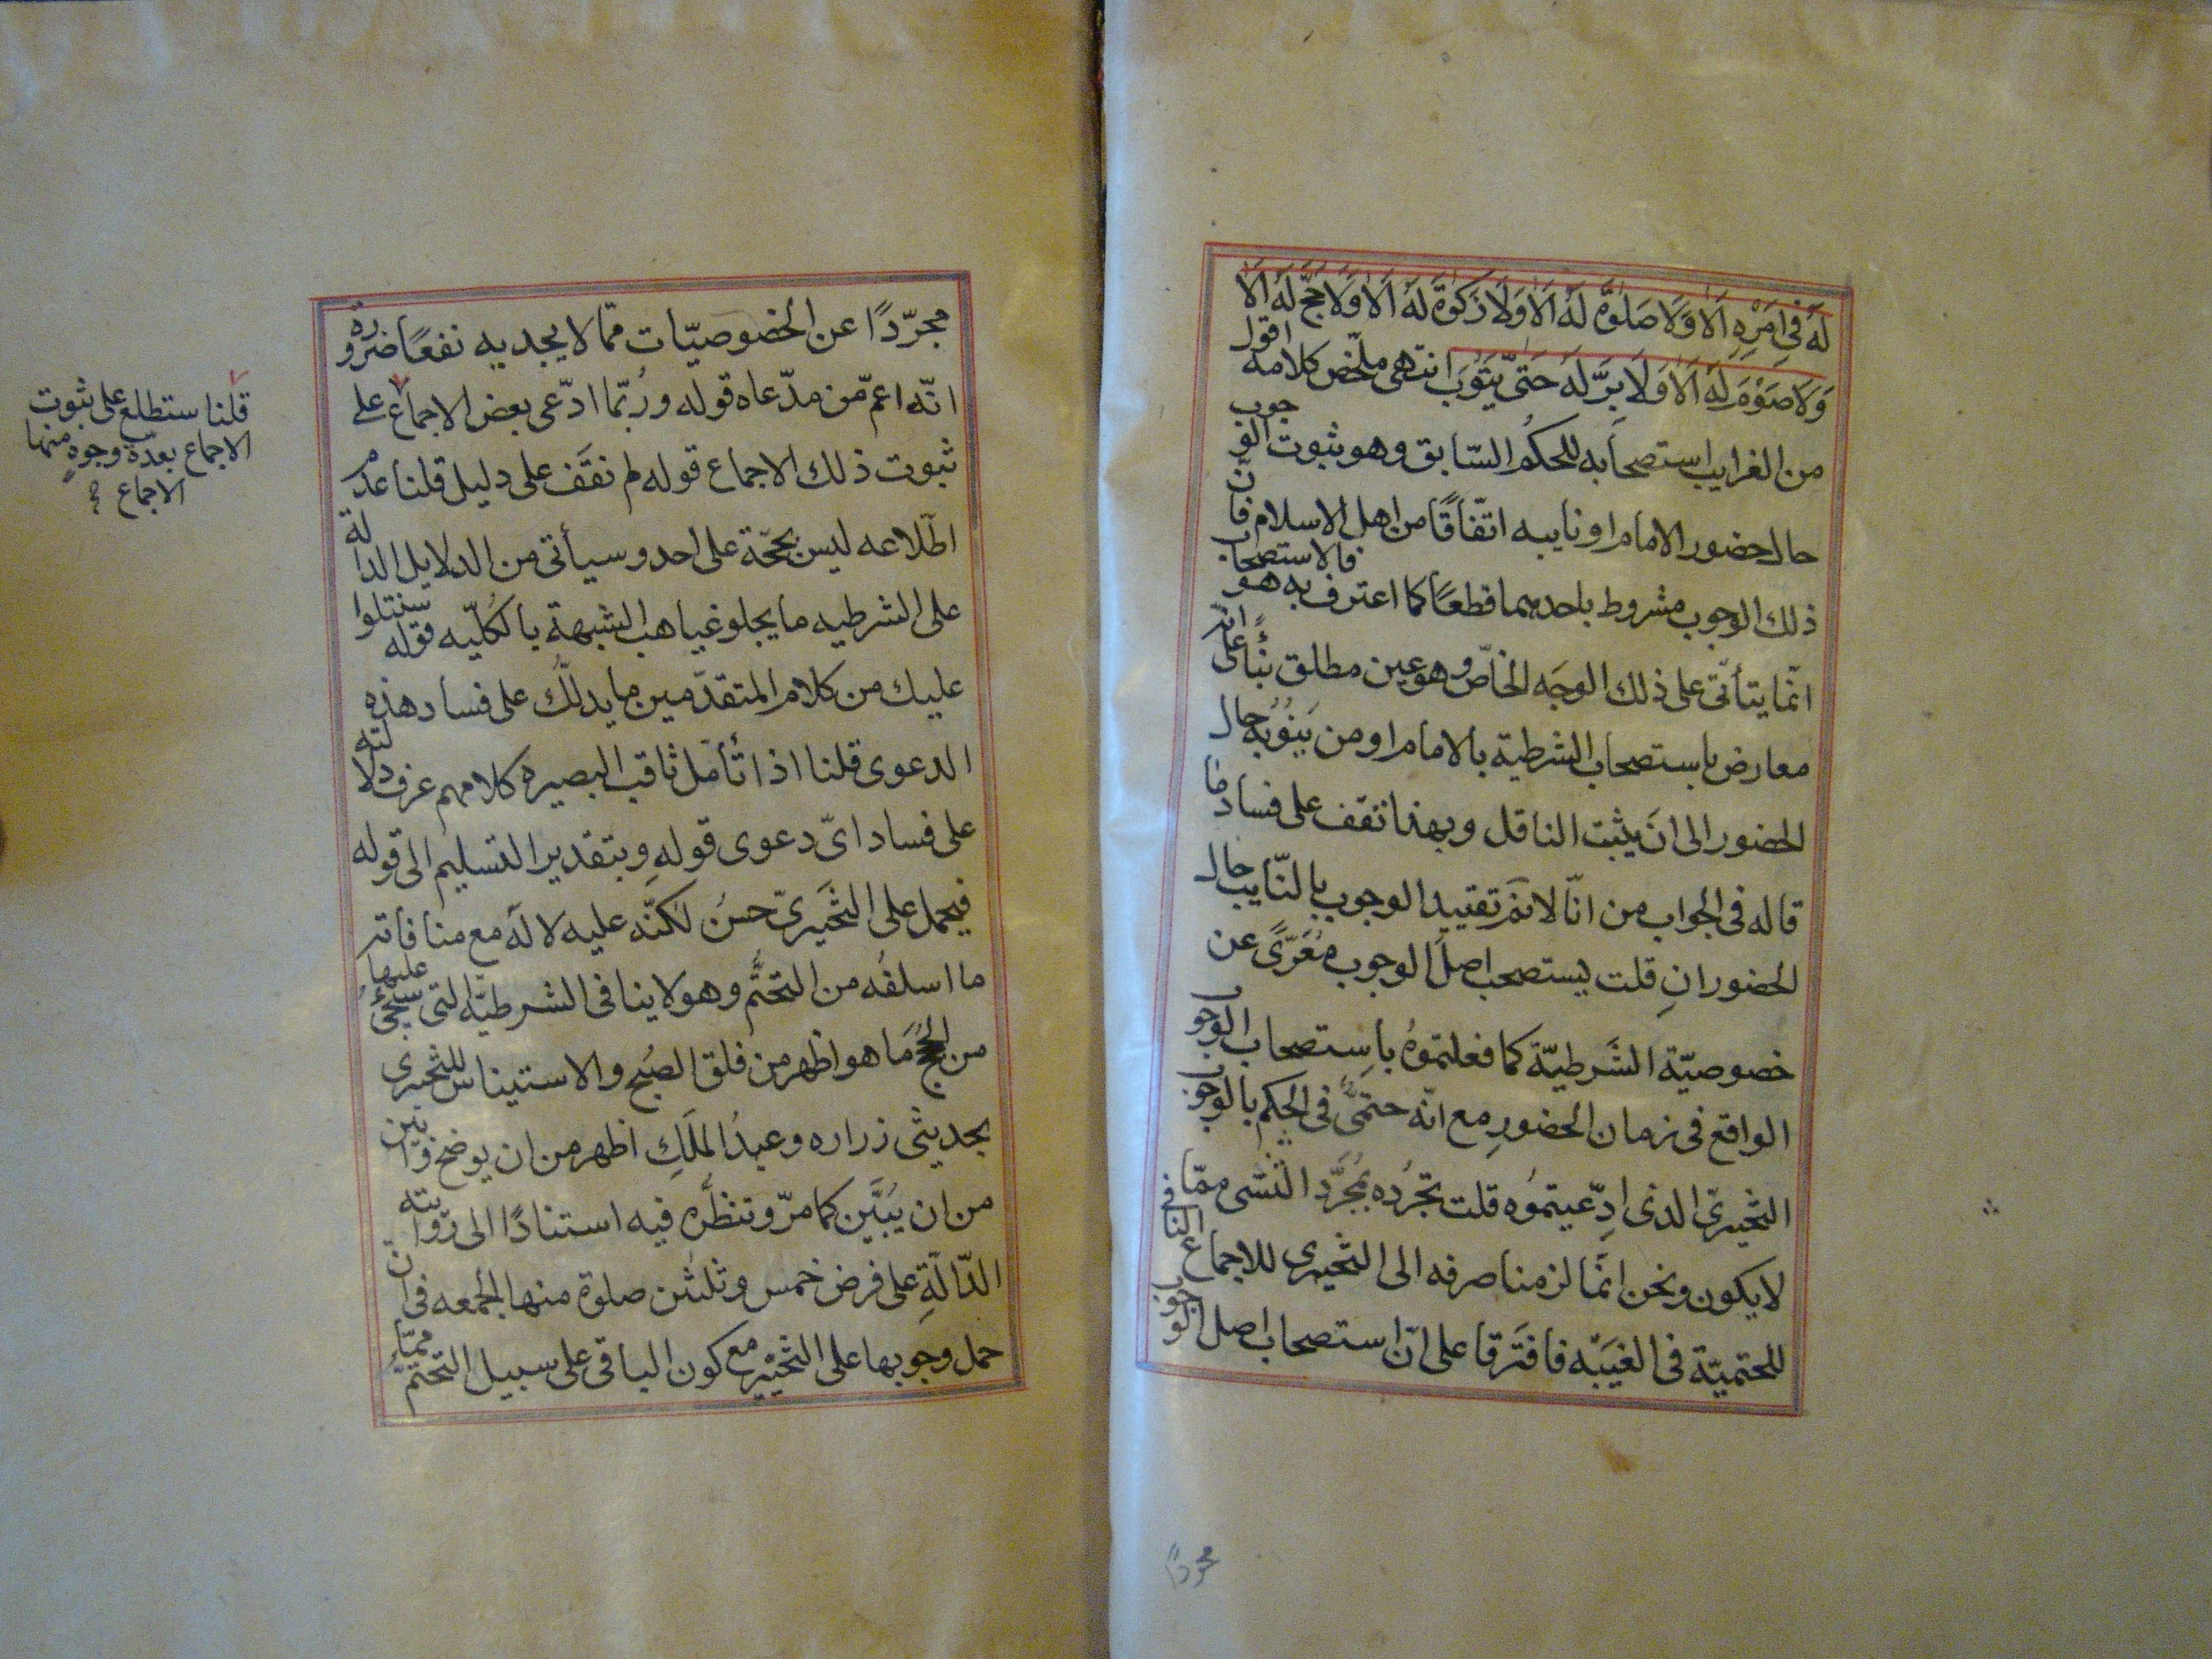 لَهُ فى اَمْرِهِ اَلاٰ وَلاٰ صَلٰوةَ لَهُ اَلاٰ وَلاٰ زَكٰوةَ لَهُ اَلاٰ وَلاٰ حَجَّ لَهُ اَلاٰ
وَلاٰ صَوْمَ لَهُ اَلاٰ وَلاٰ بِرَّ لَهُ حَتّٰى يَتُوبَ انتهى ملخّص كلامه اقول
من الغرايب استصحابه للحكم السّابق وهو ثبوت الوجوب
حال حضور الامام او نايبه اتّفاقًا من اهل الاسلام فانّ
ذلك الوجوب مشروط باحدهما قطعًا كما اعترف به هو فالاستصحاب
انّما يتأتّى على ذلك الوجه الخاصّ وهو عين مطلق بنًاء على انّه
معارض باستصحاب الشرطية بالامام او من يَنُوبُه حال
الحضور الى ان يثبت الناقل وبهذا تقف على فساد ما
قاله فى الجواب من انّا لا نم تقييد الوجوب بالنّايب حال
الحضور انِ قلت يستصحب اصل الوجوب مُعَرّىً عن
خصوصيّة الشَرطيّة كما فعلتموُه باِستصحاب الوجوب
الواقع فى زمان الحضورِ مع انّه حتمىٌّ فى الحكم بالوجوب
التخييرىّ الذى ادِّعيتموُه قلت تجرُده بمُجَرَّد التشى ممّا
لا يكون ونحن انّما لزمنا صرفه الى التخييرى للاجماع النافى
للحتميّة فى الغيَبْه فافتَرقا على انّ استصحاب اصل الوجوب
مجرّدًا
مجرّدًا عن الخصوصيّات ممّا لا يجديه نفعًا ضرورة
انّه اعمّ من مدّعاه قوله ورُبّما ادّعى بعض الاجماع على
ثبوت ذلك الاجماع قوله لم نقف على دليل قلنا عدم
اطّلاعه ليس بحجّة على احد وسيأتى من الدلايل الدالة
على الشرطيه ما يجلو غياهب الشبهة بالكلّيه قوله سنتلوا
عليك من كلام المتقدّمين ما يدلّك على فساد هذه
الدعوى قلنا اذا تأمل ثاقب البصيره كلامهم عرف دلالته
على فساد اىّ دعوى قولهِ وبتقدير التسليم الى قوله
فيحمل على التخييرىّ حسنُ لكنّه عليه لا له مع منافاته
ما اسلفُه من التحتُّم وهو لا ينافى الشرطيّه التى سيجئ عليها
من الحُجج مَا هو اظهر من فلق الصُبح والاستيناس للتخييرى
بحديثى زراره وعبدُ الملَكِ اظهر من ان يوضح وابين
من ان يُبيَّن كما مرّ وتنظُّره فيه استنادًا الى روايته
الدّالّةِ على فرض خمس وثلثين صلوة منها الجمعه فى انّ
حمل وجوبها على التخييْرِ مع كون الباقى على سبيل التحتمّ ممّا
قلنا ستطلع على ثبوت
الاجماع بعدّة وجوهٍ منها
الاجماع